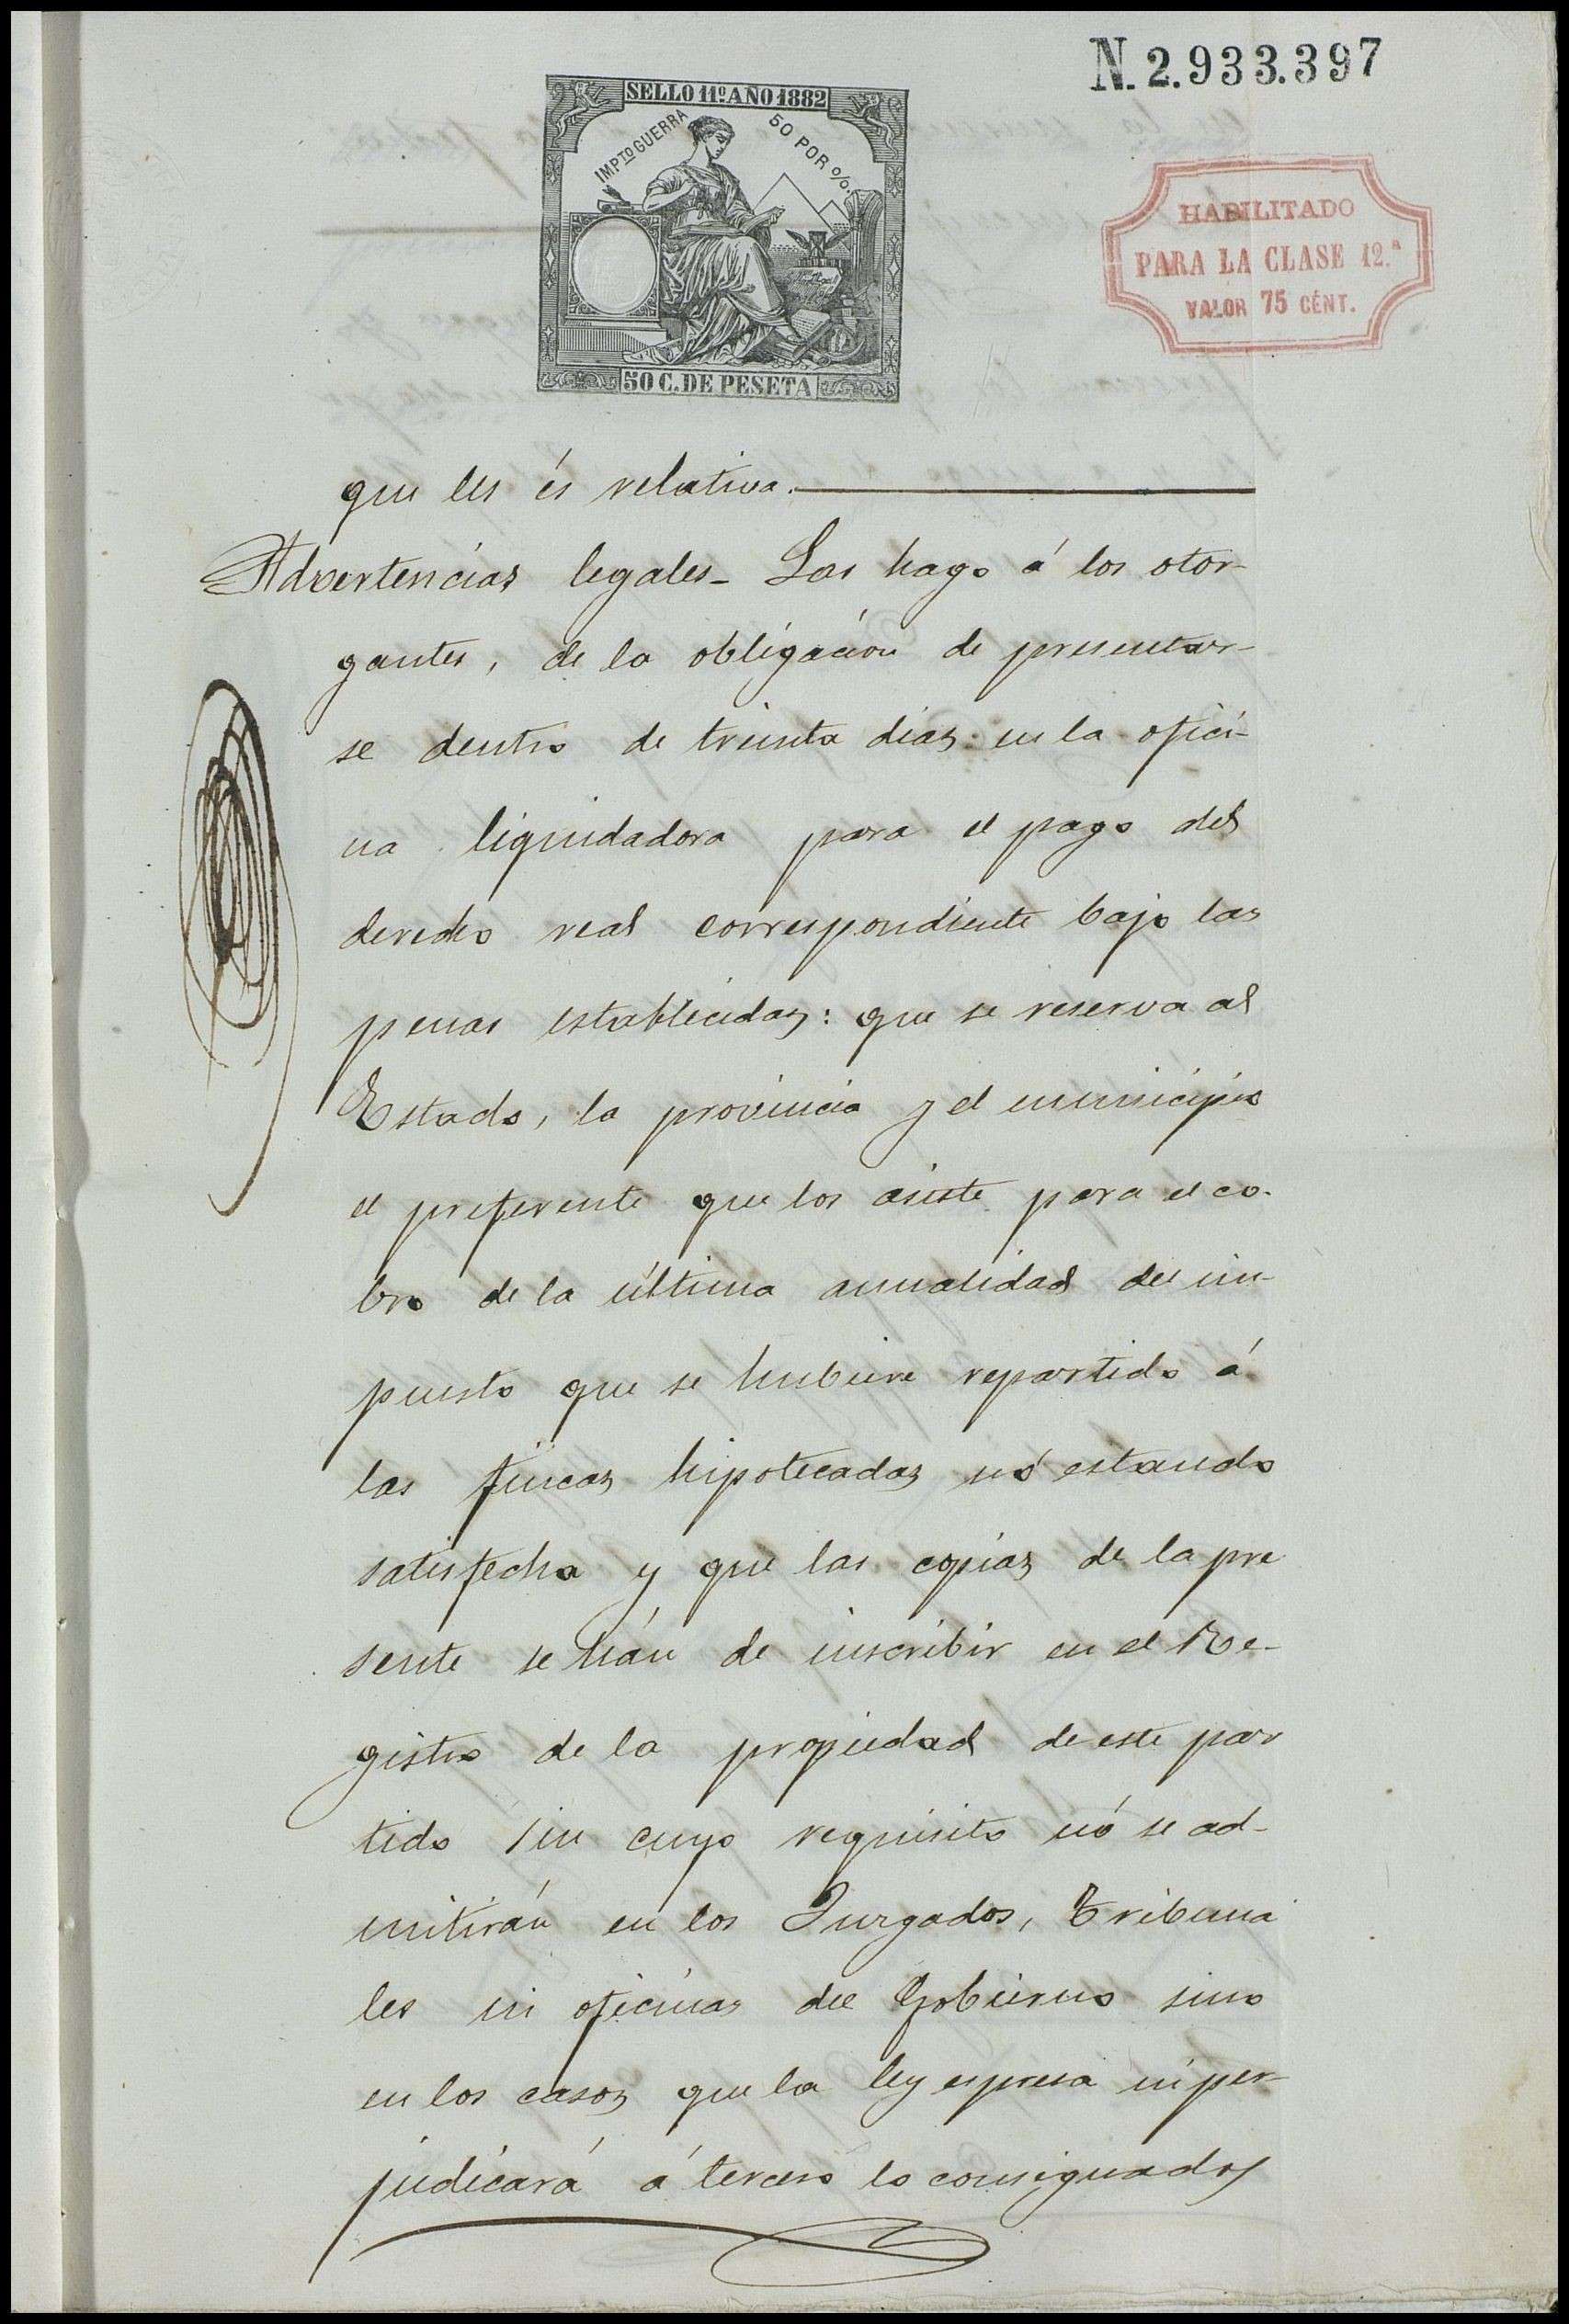 N. 2.933.397
SELLO 11º AÑO 1882
IMPTO GUERRA 50 POR %.
HABILITADO
PARA LA CLASE 12.ª
VALOR 75 CÉNT.
50 C. DE PESETA
que les és relativa.
Advertencias legales- Las hago á los otor-
gantes, de la obligación de presentar-
se dentro de treinta dias en la ofici-
na liquidadora para el pago del
derecho real correspondiente bajo las
penas establecidas: que se reserva al
Estado, la provincia y el municipio
el preferente que los asiste para el co-
bro de la última anualidad del im-
puesto que se hubiere repartido á
las fincas hipotecadas nó estando
satisfecha y que las copias de la pre
sente se hán de inscribir en el Re-
gistro de la propiedad de este par
tido sin cuyo requisito nó se ad-
mitirán en los Juzgados, Tribuna
les ni oficinas del Gobierno sino
en los casos que la ley espresa ni per-
judicará á tercero lo consignado